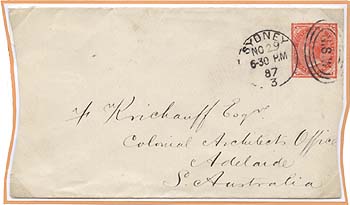 SYDNEY
NO 29
6-30 P.M
87
3
N.S.W
F Krichauff Esqre
Colonial Architects Office
Adelaide
S. Australia